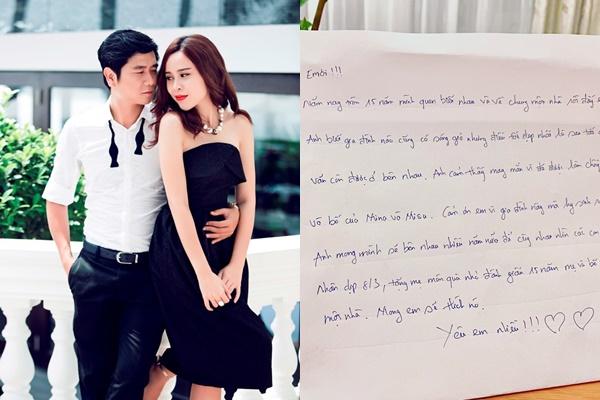 Em ơi !!!
Năm nay tròn 15 năm mình quen biết nhau và về chung một nhà rồi đấy
Anh biết gia đình nào cũng có sóng gió nhưng điều tốt đẹp nhất là sau tất cả
vẫn còn được ở bên nhau. Anh cảm thấy may mắn vì đã được làm chồng
và bố của Mina và Misu. Cảm ơn em vì gia đình này mà hy sinh
Anh mong mình sẽ bên nhau nhiều năm nữa để cùng nhau nhìn các con
Nhân dịp 8/3, tặng mẹ món quà nhỏ đánh giấu 15 năm mẹ và bố
một nhà. Mong em sẽ thích nó.
Yêu em nhiều !!!